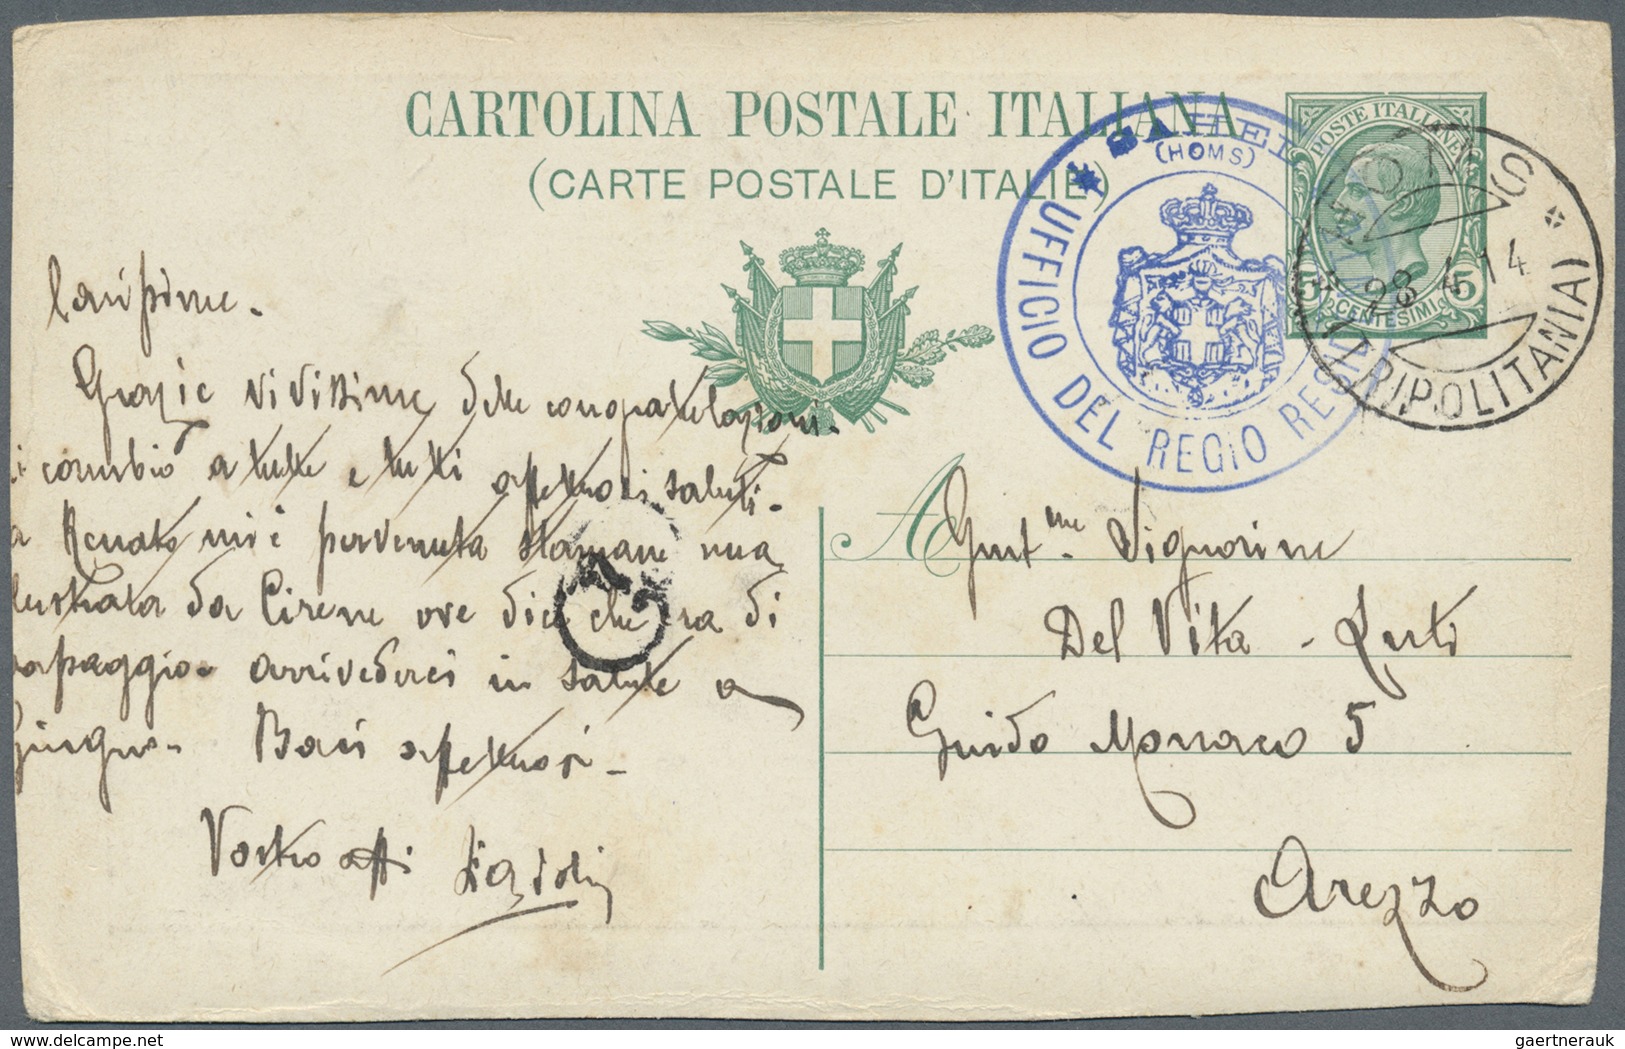 CARTOLINA POSTALE ITALIANA
(CARTE POSTALE D'ITALIE)
(HOMS)
UFFICIO DEL REGIO RESID
POSTE ITALIANE
5 CENTESIMI 5
HOMS
28 4 14
(TRIPOLITANIA)
Carissime.
Grazie vivissime delle congratulazioni.
cambio a tutte e tutti affettuosi saluti.
Renato mi è pervenuta stamane una
lustrata da Cirene ove dice che era di
passaggio. Arrivederci in salute a
Giugno. Baci affettuosi.
Vostro aff
Gent.me Signorine
Del Vita - Luti
Guido Monaco 5
Arezzo
gaertnerauk